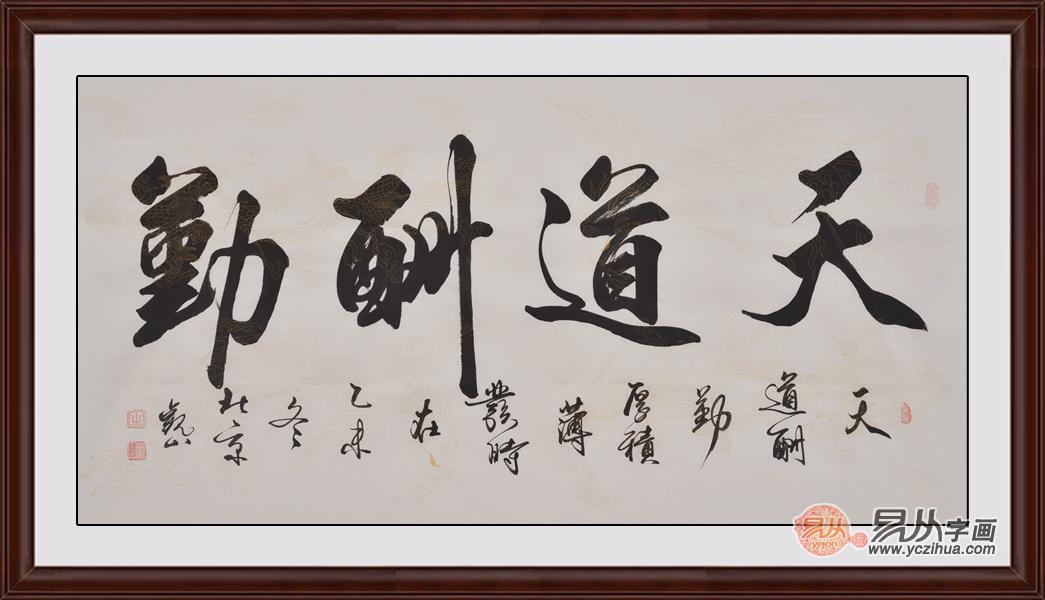 天道酬勤
天
道酬
勤
厚積
薄
發時
在
乙未
冬
北京
易从
易从字画
www.yczihua.com